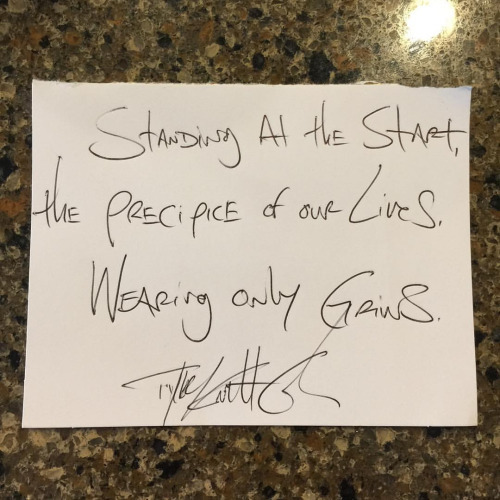 Standing at the Start,
the precipice of our Lives.
Wearing only Grins.
Tyler Knott G